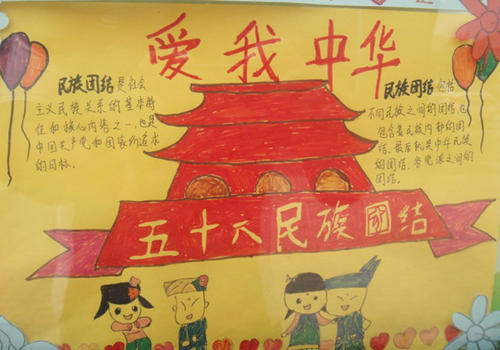 爱我中华
民族团结是社会
主义民族关系的基本特
征和核心内容之一,也是
中国共产党和国家所追求
的目标。
民族团结包括
不同民族之间的团结也
包含着民族内部的团
结,最有机关中华民族
的团结,各党派之间的
团结。
五十六民族团结